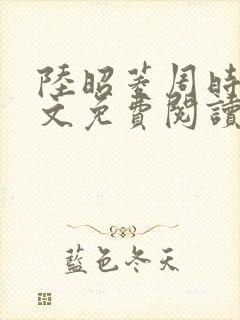 陸昭菱周時
文免費閱讀
藍色冬天